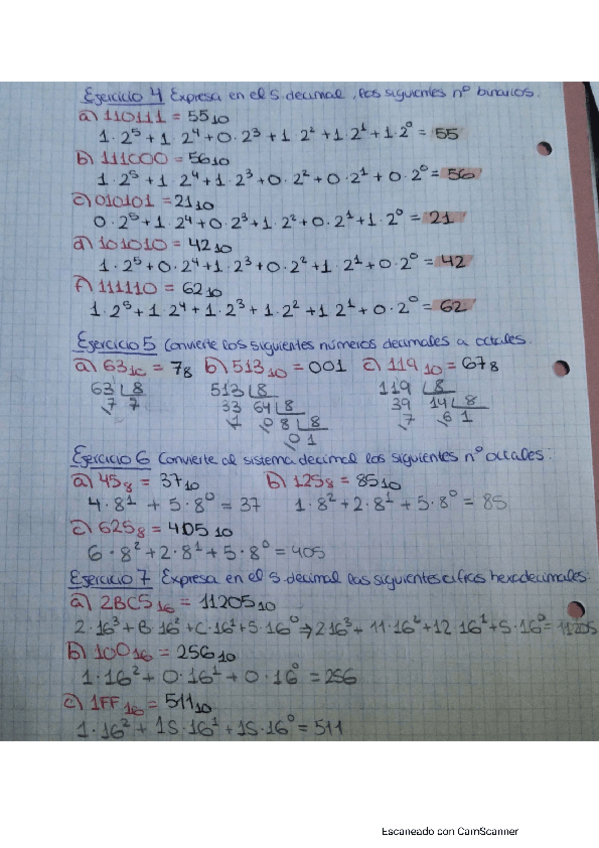 Ejercicio 4 Expresa en el S. decimal, los siguientes nº binarios.
a) 110111 = 55₁₀
1·2⁵+1·2⁴+0·2³+1·2²+1·2¹+1·2⁰= 55
b) 111000 = 56₁₀
1·2⁵+1·2⁴+1·2³+0·2²+0·2¹+0·2⁰= 56
c) 010101 = 21₁₀
0·2⁵+1·2⁴+0·2³+1·2²+0·2¹+1·2⁰ = 21
d) 101010 = 42₁₀
1·2⁵+0·2⁴+1·2³+0·2²+1·2¹+0·2⁰= 42
f) 111110 = 62₁₀
1·2⁵+1·2⁴+1·2³+1·2²+1·2¹+0·2⁰= 62
Ejercicio 5 Convierte los siguientes números decimales a octales.
a) 63₁₀ = 7₈ b) 513₁₀ = 001 c) 119₁₀ = 67₈
63 8 513 8 119 8
7 7 33 64 8 39 14 8
1 0 8 8 7 6 1
0 1
Ejercicio 6 Convierte al sistema decimal los siguientes nº octales:
a) 45₈ = 37₁₀ b) 125₈ = 85₁₀
4·8¹ + 5·8⁰ = 37 1·8²+2·8¹+5·8⁰ = 85
c) 625₈ = 405₁₀
6·8²+2·8¹+5·8⁰ = 405
Ejercicio 7 Expresa en el S decimal las siguientes cifras hexadecimales:
a) 2BC5₁₆ = 11205₁₀
2·16³+B·16²+C·16¹+5·16⁰⇒2·16³+11·16²+12·16¹+5·16⁰=11205
b) 100₁₆ = 256₁₀
1·16²+0·16¹+0·16⁰ = 256
c) 1FF₁₆ = 511₁₀
1·16²+15·16¹+15·16⁰ = 511
Escaneado con CamScanner